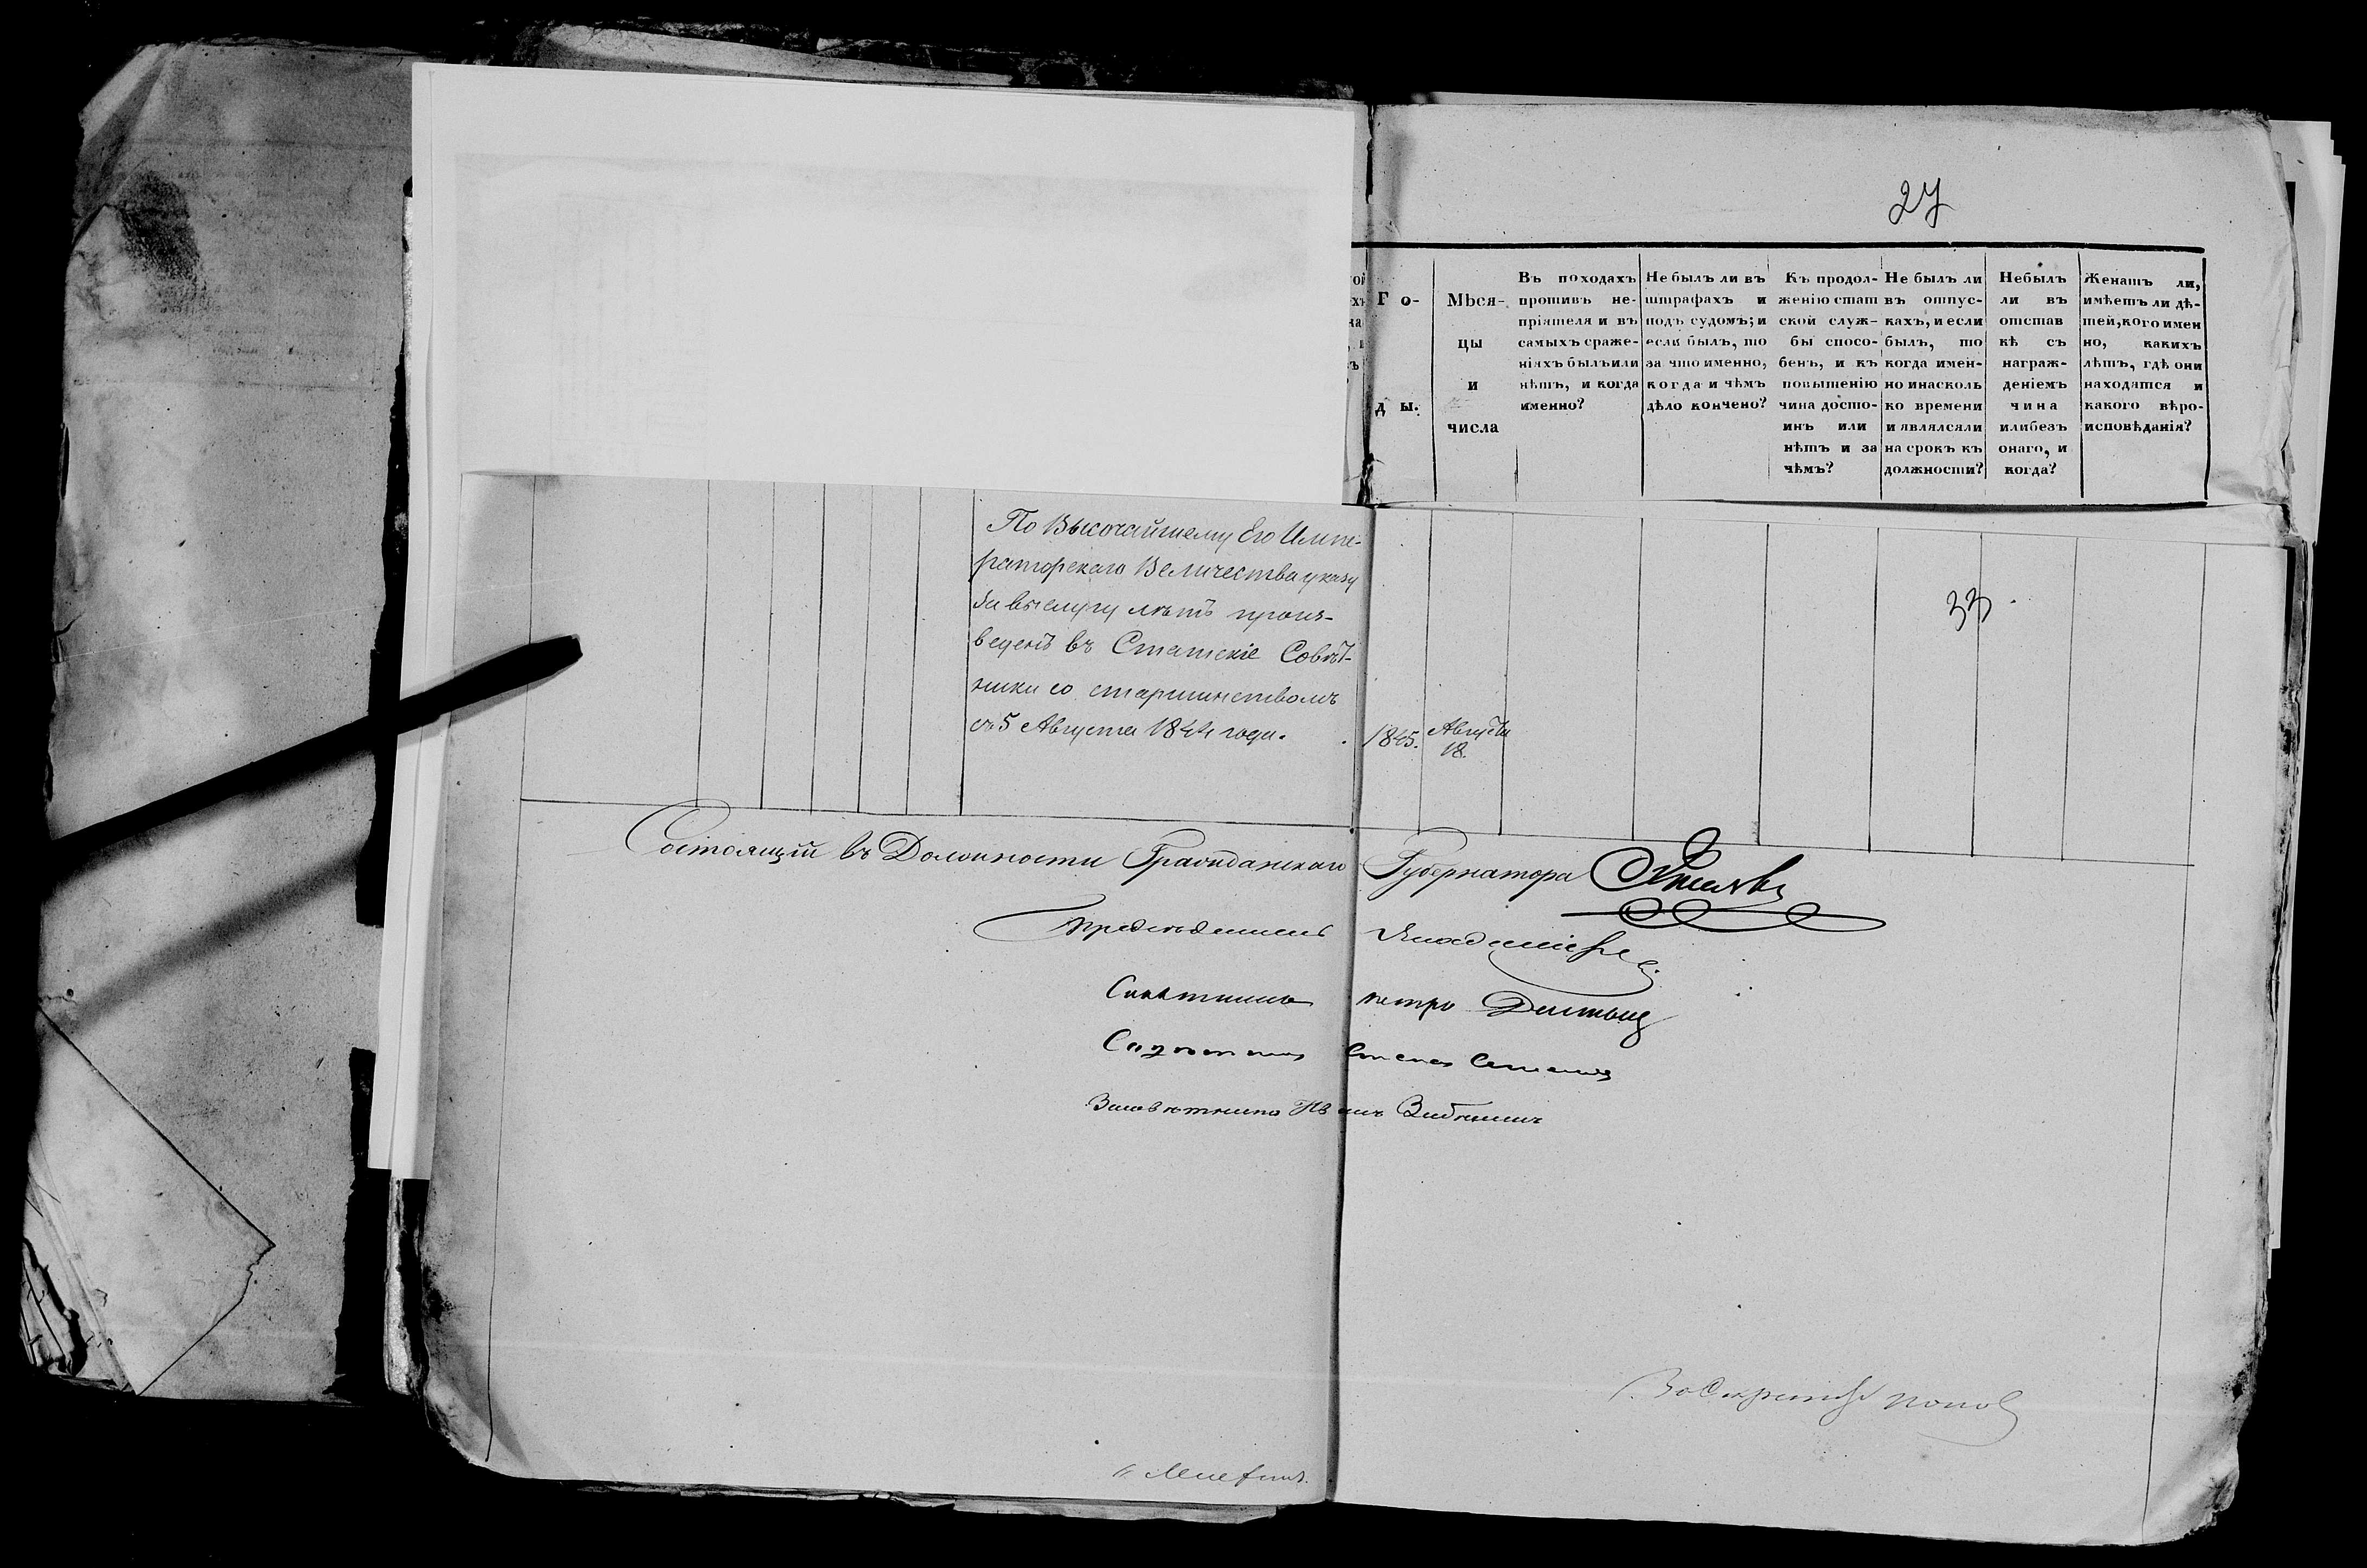 27
Го-
ды.
Мѣся-
цы
и
числа
Въ походахъ
противъ не-
пріятеля и въ
самыхъ сраже-
ніяхъ былъ или
нѣтъ, и когда
именно?
Не былъ ли въ
штрафахъ и
подъ судомъ; и
если былъ, то
за что именно,
когда и чѣмъ
дѣло кончено?
Къ продол-
женію стат
ской служ-
бы спосо-
бенъ, и къ
повышенію
чина досто-
инъ или
нѣтъ и за
чѣмъ?
Не былъ ли
въ отпус-
кахъ, и если
былъ, то
когда имен-
но и насколь
ко времени
и являлся ли
на срокъ къ
должности?
Небылъ
ли въ
отстав
кѣ съ
награж-
деніемъ
чина
или безъ
онаго, и
когда?
Женатъ ли,
имѣетъ ли дѣ-
тей, кого имен
но, какихъ
лѣтъ, гдѣ они
находятся и
какого вѣро-
исповѣданія?
По Высочайшему Его Импе-
раторскаго Величества указу
за выслугу лѣтъ произ-
веденъ въ Статскіе Совѣт-
ники со старшинствомъ
съ 5 Августа 1844 года.
1845.
Августа
18.
33
Состоящій въ Должности Гражданскаго Губернатора
Совѣтникъ Петръ
Совѣтникъ
Иванъ
Попов